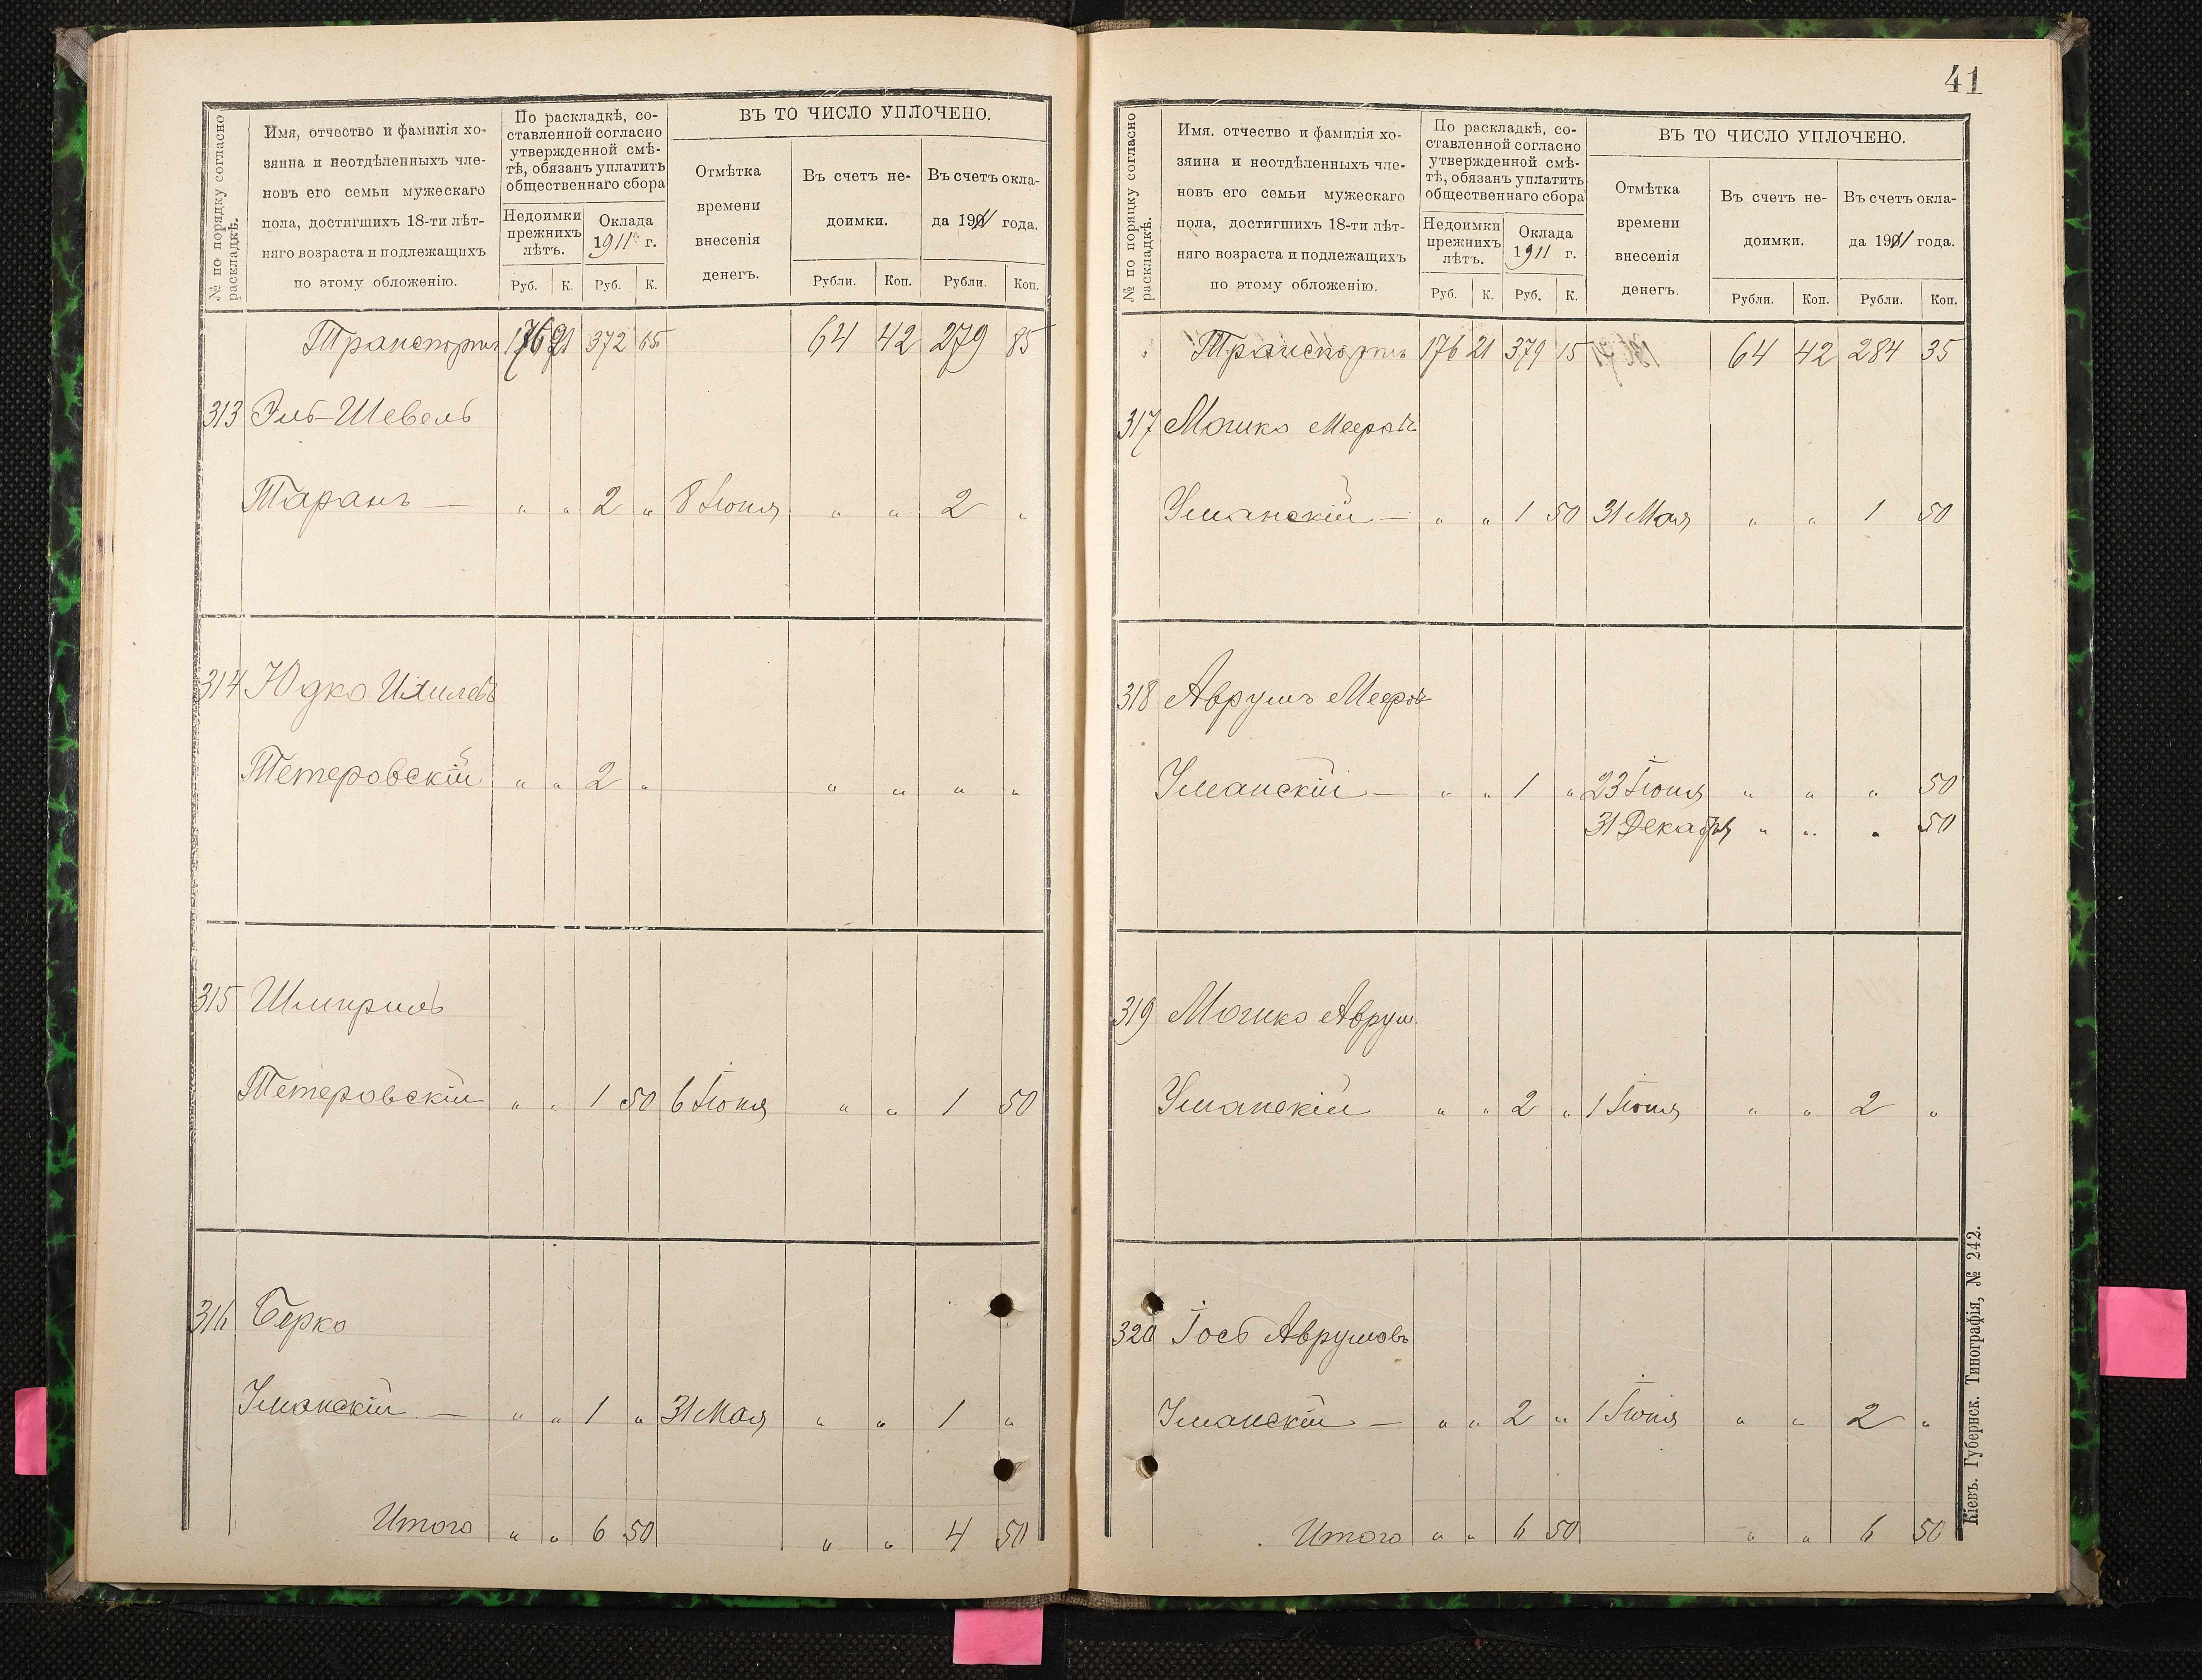 № по порядку согласно
раскладкѣ.
Имя, отчество и фамилія хо-
зяина и неотдѣленныхъ чле-
новъ его семьи мужескаго
пола, достигшихъ 18-ти лѣт-
няго возраста и подлежащихъ
по этому обложенію.
По раскладкѣ, со-
ставленной согласно
утвержденной смѣ-
тѣ, обязанъ уплатить
общественнаго сбора
Недоимки
прежнихъ
лѣтъ.
Оклада
1911 г.
Руб. К. Руб. К.
ВЪ ТО ЧИСЛО УПЛОЧЕНО.
Отмѣтка
времени
внесенія
денегъ.
Въ счетъ не-
доимки.
Въ счетъ окла-
да 1911 года.
Рубли. Коп. Рубли. Коп.
Транспортъ 176 21 372 65 64 42 279 85
313 Эль-Шевель
Таранъ — " " 2 " 8 Іюня " " 2 "
314 Юдко Ихилевъ
Тетеровскій " " 2 " " " " "
315 Шмириль
Тетеровскій " " 1 50 6 Іюня " " 1 50
316 Берко
Уманскій — " " 1 " 31 Мая " " 1 "
Итого " " 6 50 " " 4 50
41
№ по порядку согласно
раскладкѣ.
Имя. отчество и фамилія хо-
зяина и неотдѣленныхъ чле-
новъ его семьи мужескаго
пола, достигшихъ 18-ти лѣт-
няго возраста и подлежащихъ
по этому обложенію.
По раскладкѣ, со-
ставленной согласно
утвержденной смѣ-
тѣ, обязанъ уплатить
общественнаго сбора
Недоимки
прежнихъ
лѣтъ.
Оклада
1911 г.
Руб. К. Руб. К.
ВЪ ТО ЧИСЛО УПЛОЧЕНО.
Отмѣтка
времени
внесенія
денегъ.
Въ счетъ не-
доимки.
Въ счетъ окла-
да 1911 года.
Рубли. Коп. Рубли. Коп.
Транспортъ 176 21 379 15 64 42 284 35
317 Мошко Меер
Уманскій — " " 1 50 31 Мая " " 1 50
318 Аврумъ Меер
Уманскій — " " 1 " 23 Іюня " " " 50
31 Декабря " " " 50
319 Мошко Аврум
Уманскій " " 2 " 1 Іюня " " 2 "
320 Іось Аврумовъ
Уманскій — " " 2 " 1 Іюня " " 2 "
Итого " " 6 50 " " 6 50
Кіевъ. Губернск. Типографія, № 242.